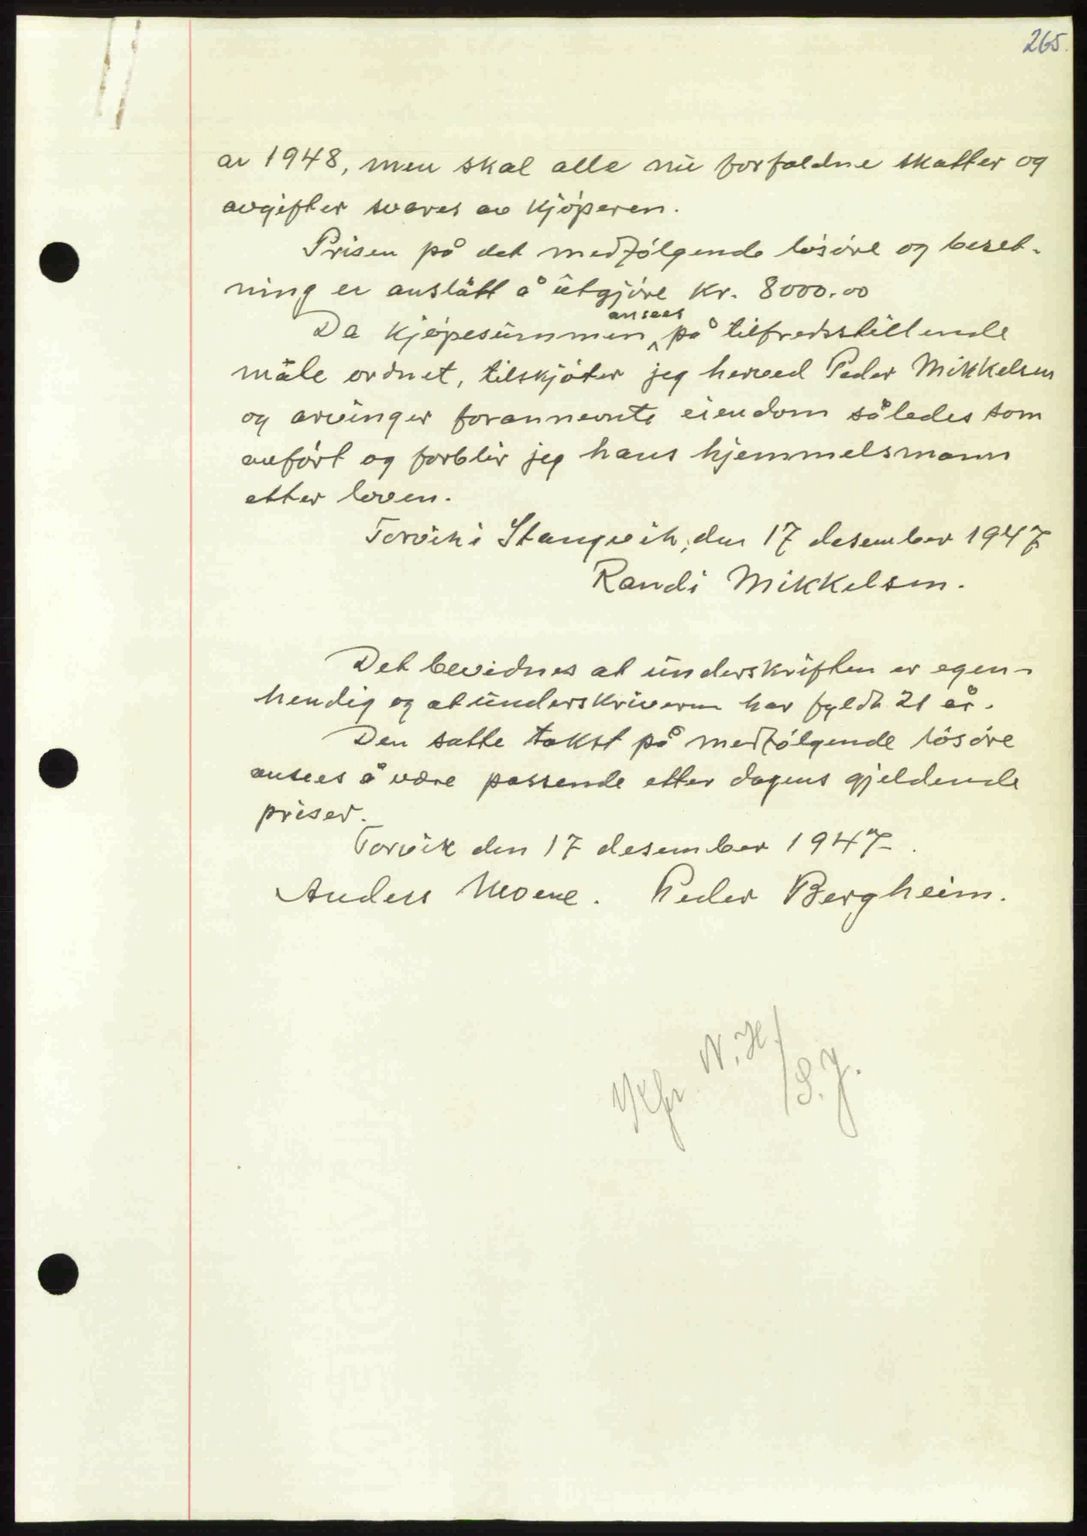 265.
ar 1948, men skal alle nu forfaldne skatter og
avgifter svares av kjøperen.
Prisen på det medfølgende løsøre og beset-
ning er anslått å utgjøre kr. 8000.00
ansees
Da kjøpesummen på tilfredsstillende
måte ordnet, tilskjøter jeg herved Peder Mikkelsen
og arvinger forannevnte eiendom således som
anført og forblir jeg hans hjemmelsmann
etter loven.
Torvik i Stangvik, den 17 desember 1947
Randi Mikkelsen.
Det bevidnes at underskriften er egen-
hendig og at underskriveren har fyldt 21 år.
Den satte takst på medfølgende løsøre
ansees å være passende etter dagens gjeldende
priser.
Torvik den 17 desember 1947.
Anders Moene. Peder Bergheim.
N. H/
S. J.